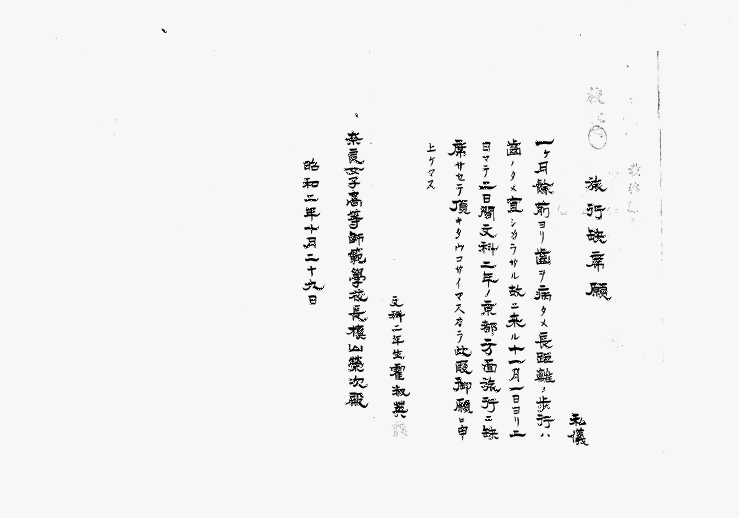 旅行缺席願
私儀
一ケ月餘前ヨリ齒ヲ病タメ長距離ノ歩行ハ
齒ノタメ宜シカラサル故ニ来ル十一月一日ヨリ二
日マテ二日間文科二年ノ京都方面旅行ニ缺
席サセテ頂キタウコサイマスカラ此段御願ヒ申
上ケマス
文科二年生霍淑英
奈良女子高等師範學校長槇山榮次殿
昭和二年十月二十九日